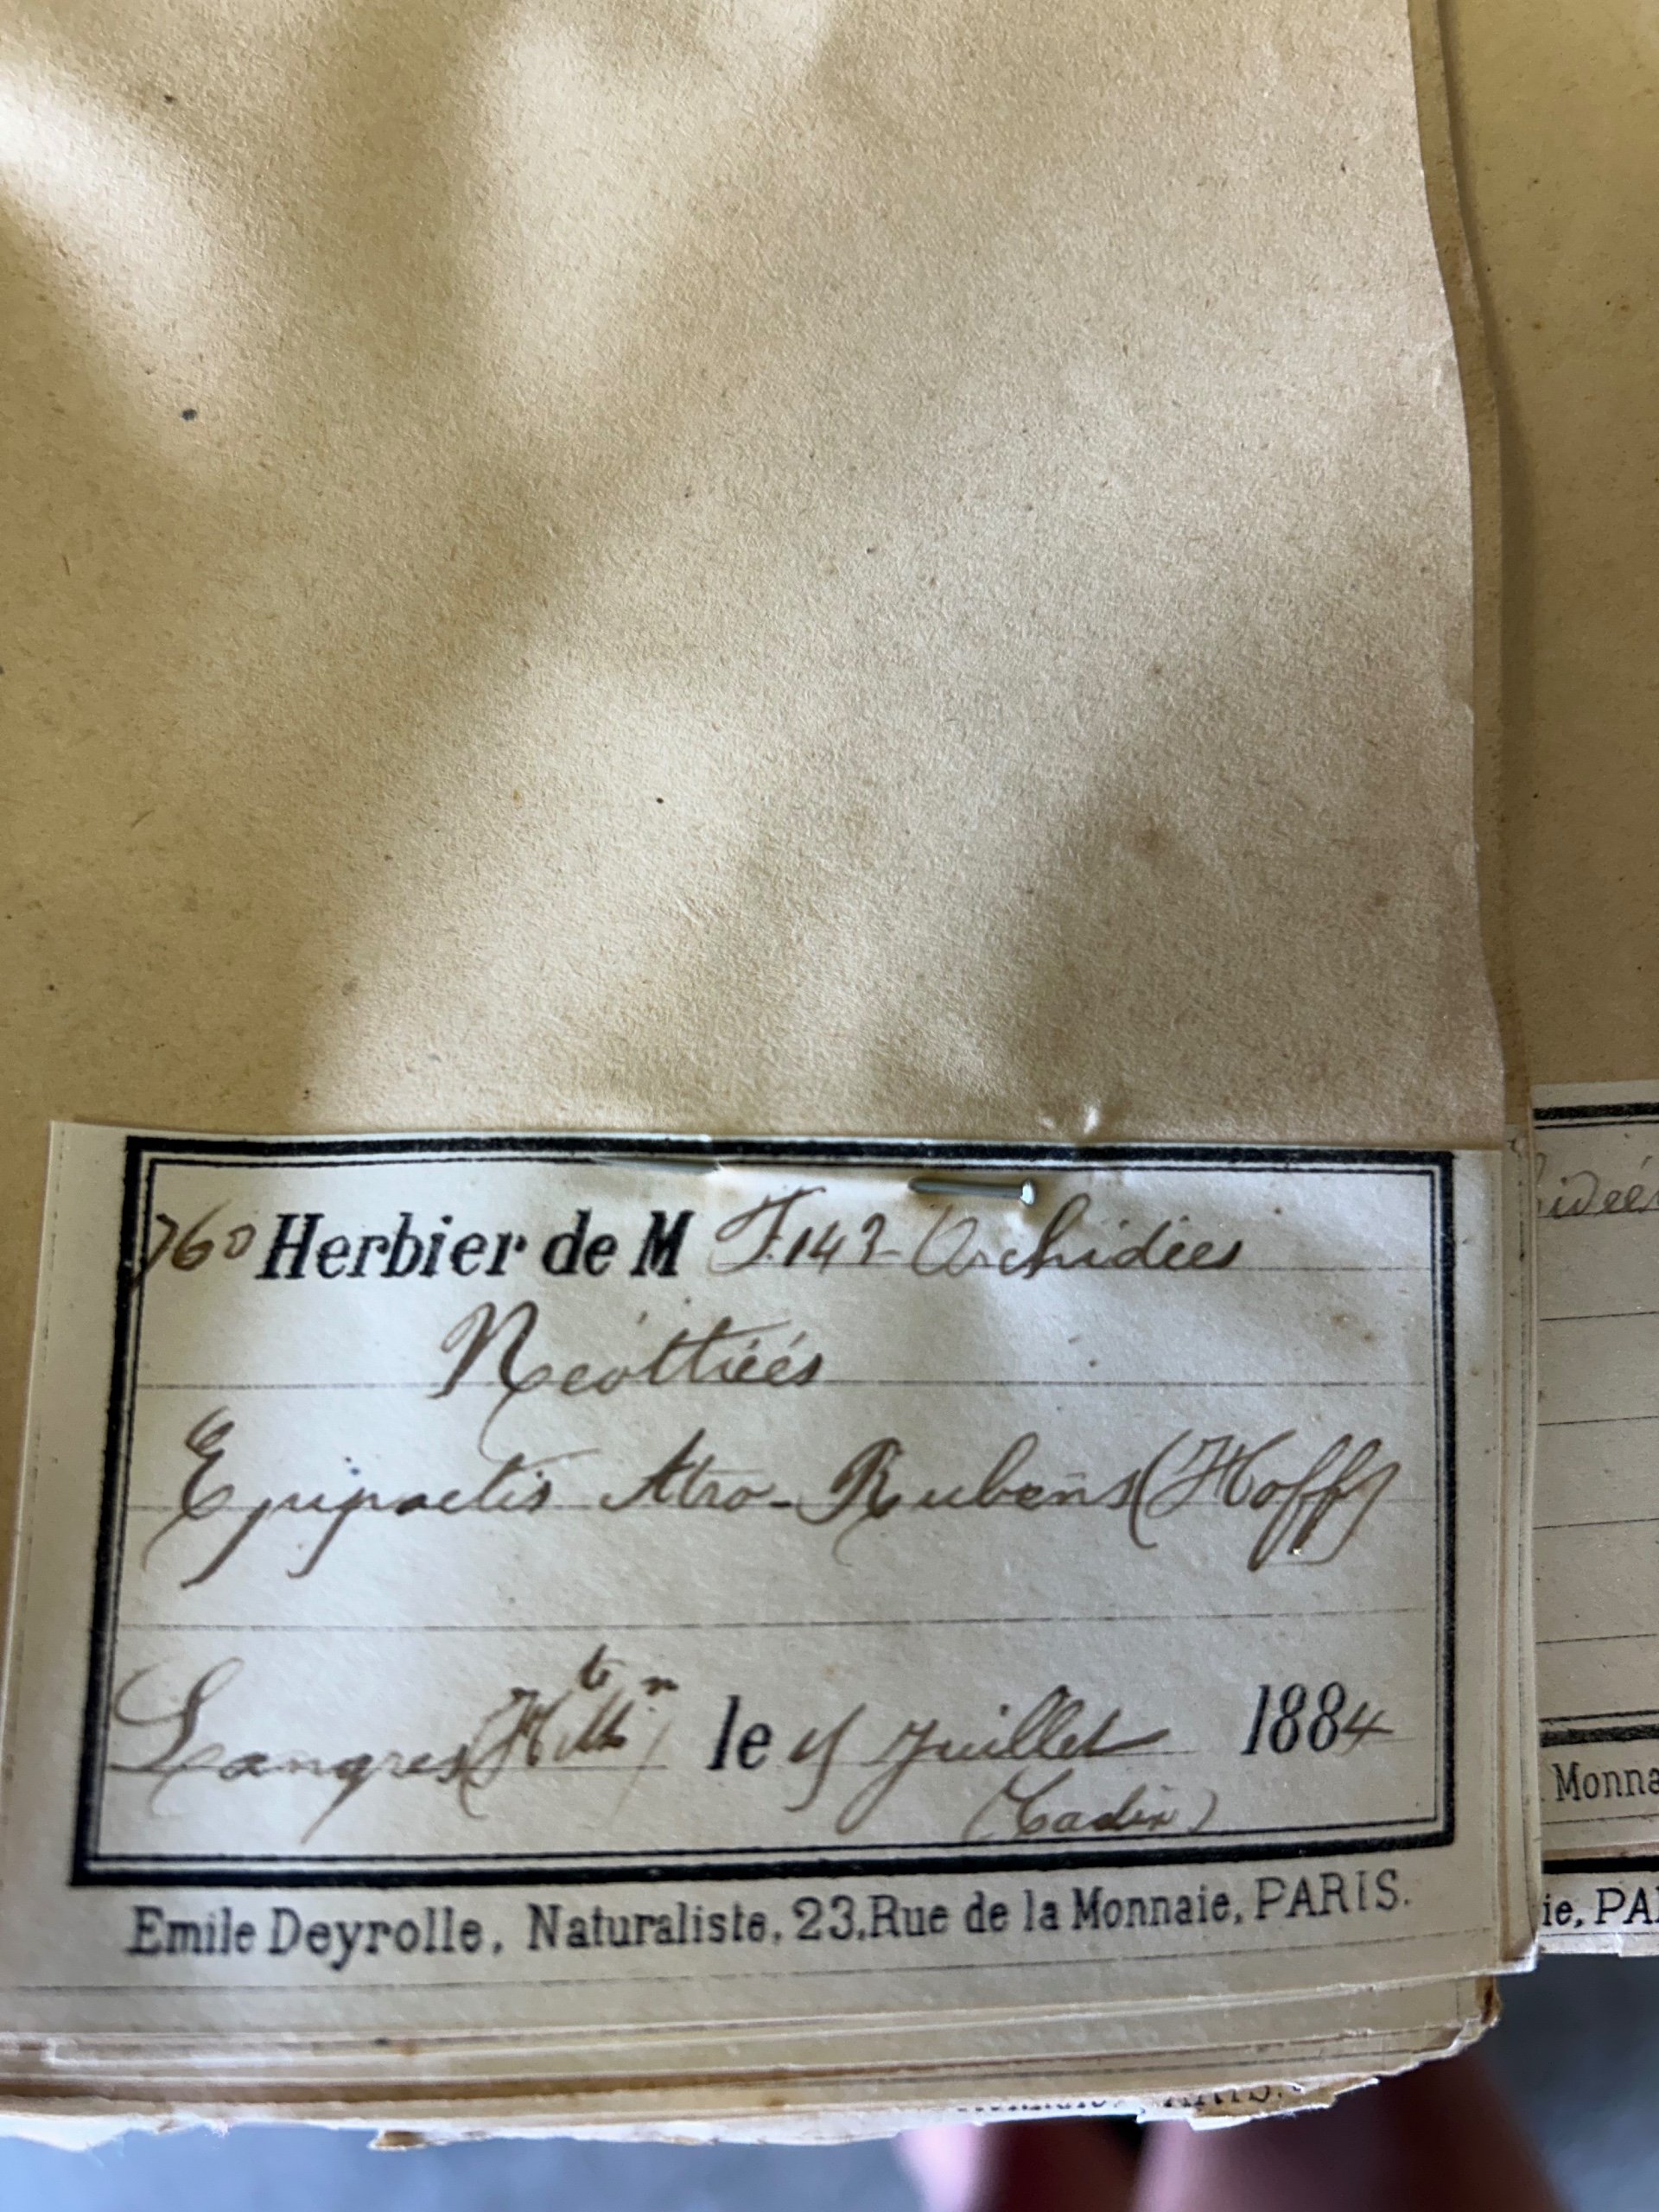 760 Herbier de M F. 142 Orchidées
Néottiéés
Epipactis Atro-Rubens (Hoff)
Langres (Hte Mne) le Juillet 1884
Emile Deyrolle, Naturaliste, 23, Rue de la Monnaie, PARIS.
idées
Monna
ie, PA